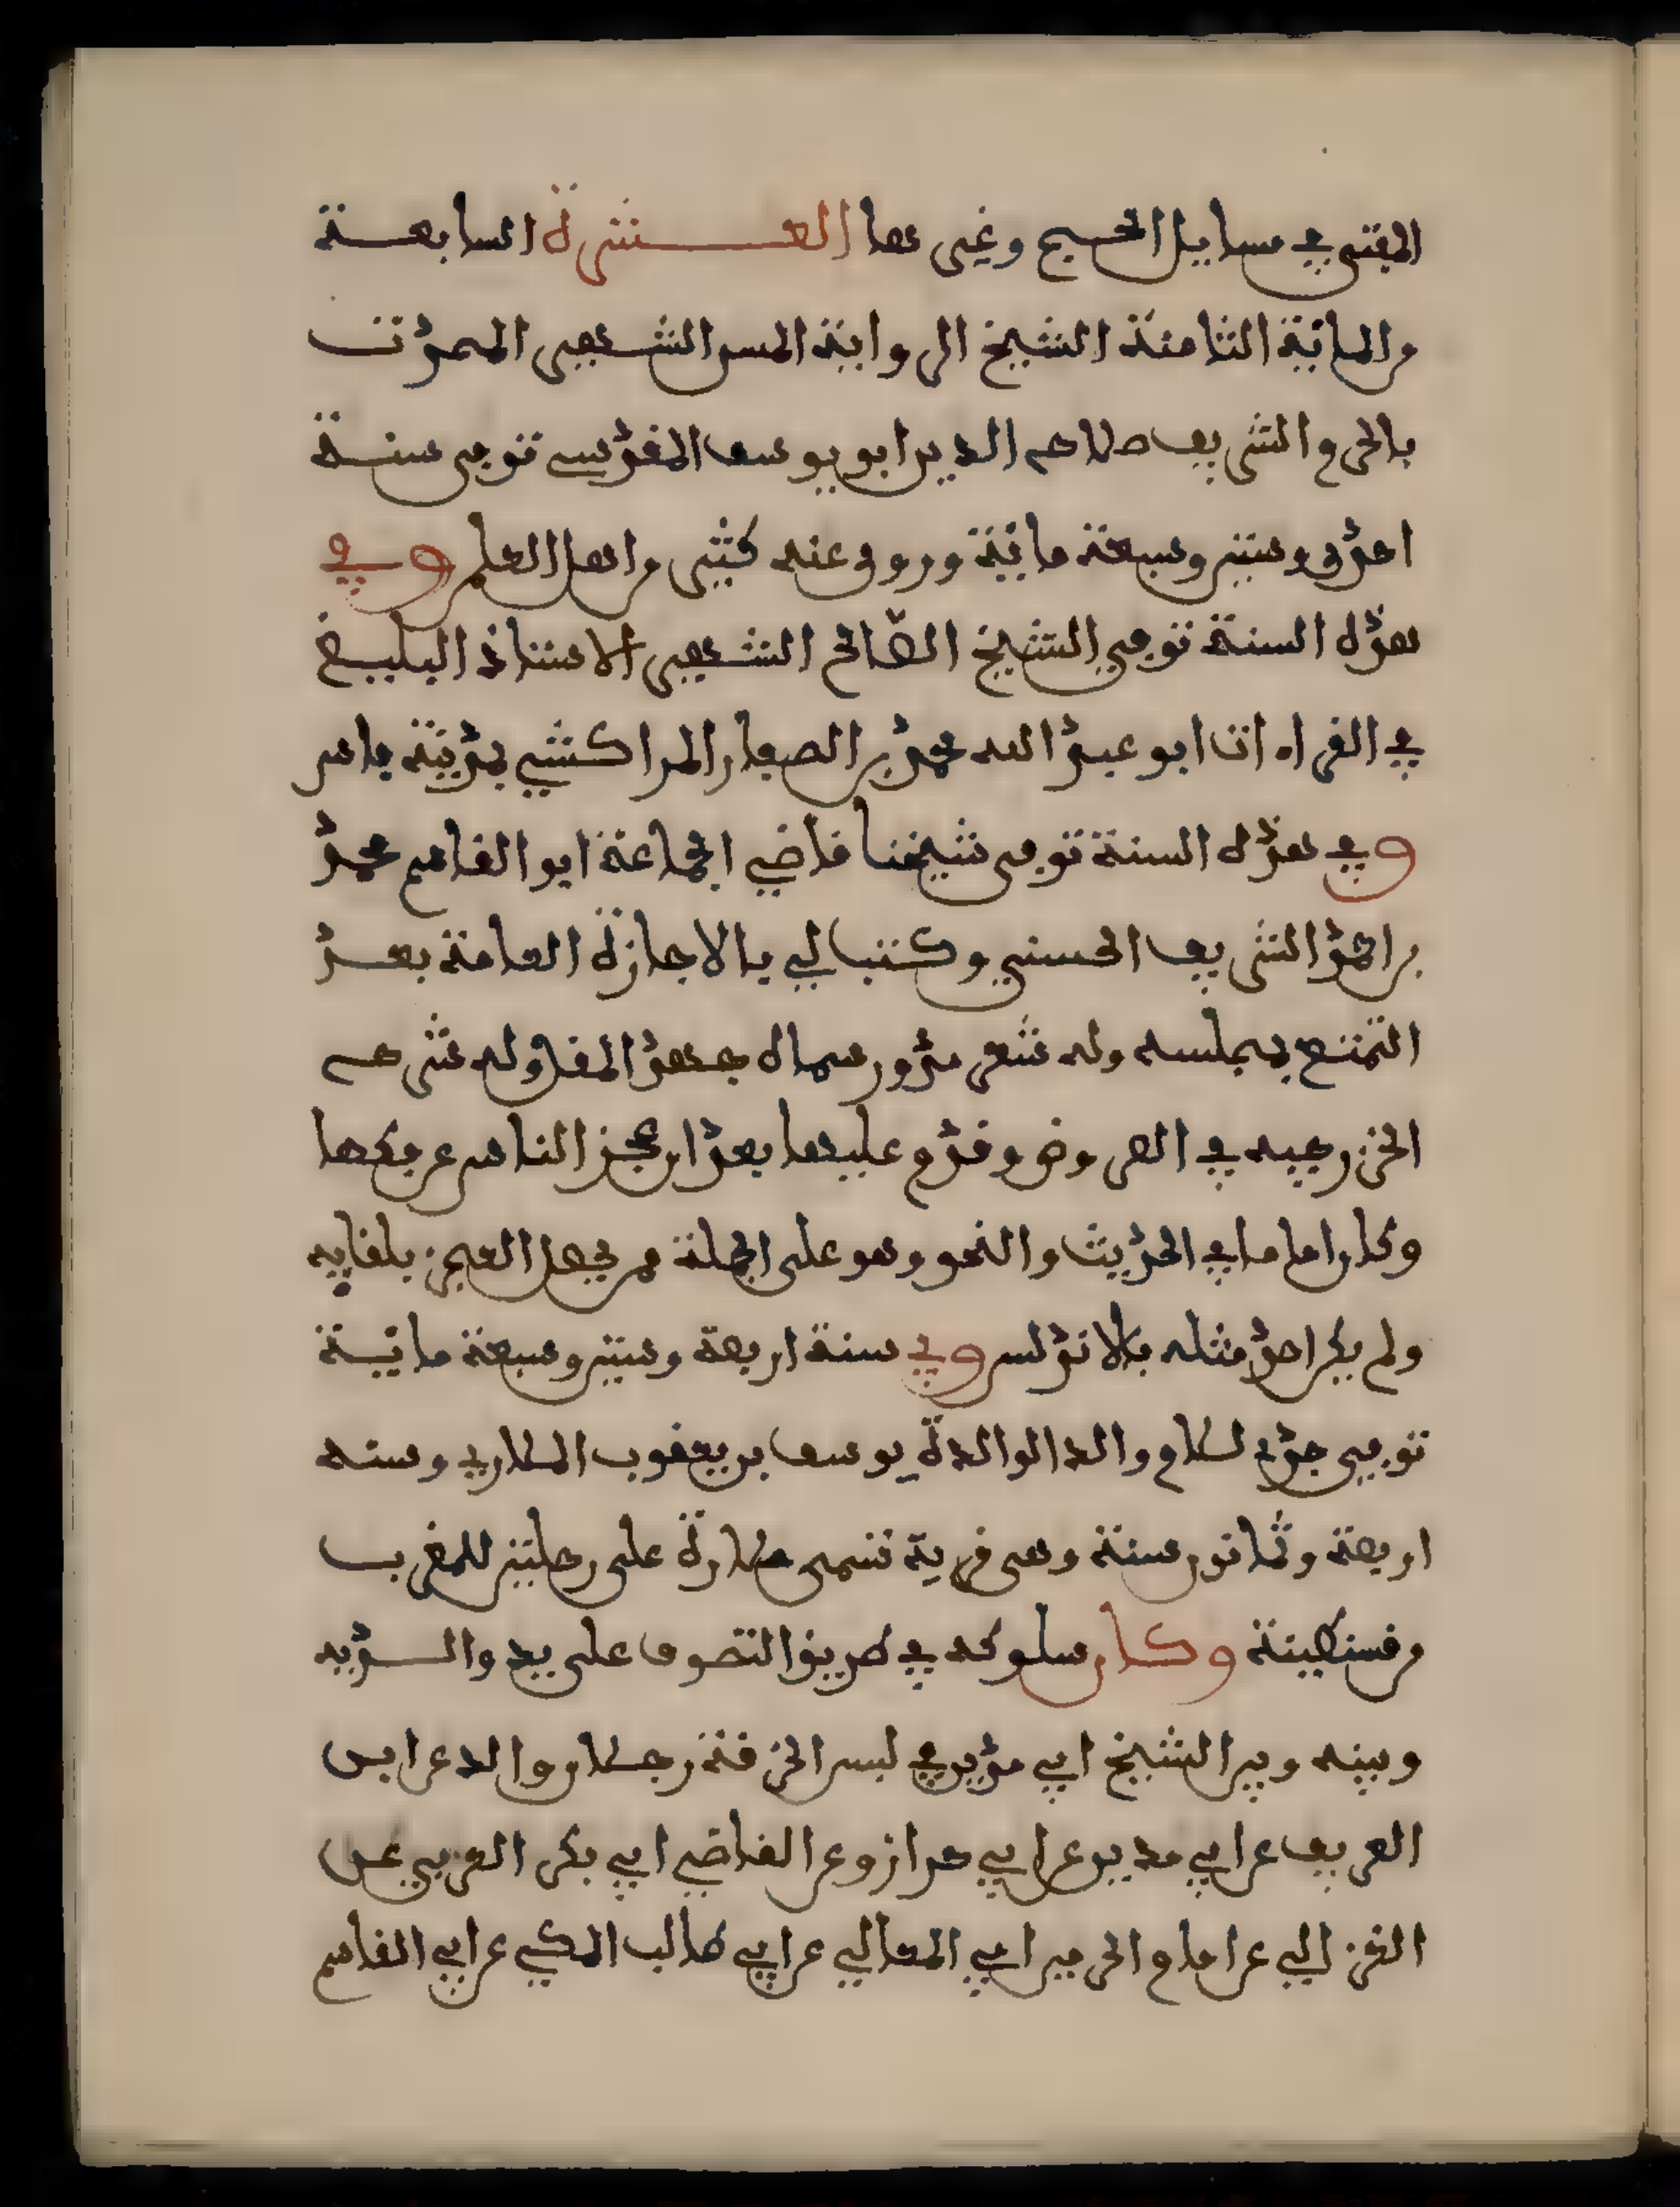 المفتي في مسايل الحج وغيرها العشرة السابعة
من المائة الثامنة الشيخ الراوية المسن الشهير المحدث
بالحرم الشريف صلاح الدين ابو يوسف المقدسي توفي سنة
احدى وستين وسبعة مائة وروى عنه كثير من اهل العلم وفي
هذه السنة توفي الشيخ الصالح الشهير الاستاذ البليغ
في القراءات ابو عبد الله محمد بن الصفار المراكشي بمدينة فاس
وفي هذه السنة توفي شيخنا قاضي الجماعة ابو القاسم محمد
بن احمد الشريف الحسني وكتب لي بالاجازة العامة بعد
التمتع بمجلسه وله شعر مدون سماه جهد المقل وله شرح
الخزرجيه في العروض وقدم عليها بعد ان عجز الناس عن فكها
وكان اماما في الحديث والنحو وهو على الجملة ممن يحصل الفخر بلقايه
ولم يكن احد مثله بالاندلس وفي سنة اربعة وستين وسبعة مائة
توفي جدي للام والد الوالدة يوسف بن يعقوب الملاري وسنه
اربعة وثمانون سنة وهي قرية تسمى ملارة على رحلتين للمغرب
من قسنطينة وكان سلوكه في طريق التصوف على يد والديه
وبينه وبين الشيخ ابي مدين في لبس الخرقة رجلان والد عن ابن
العريف عن ابي مدين عن ابي حرازوعن القاضي ابي بكر العربي عن
الغزالي عن امام الحرمين ابي المعالي عن ابي طالب المكي عن ابي القاسم